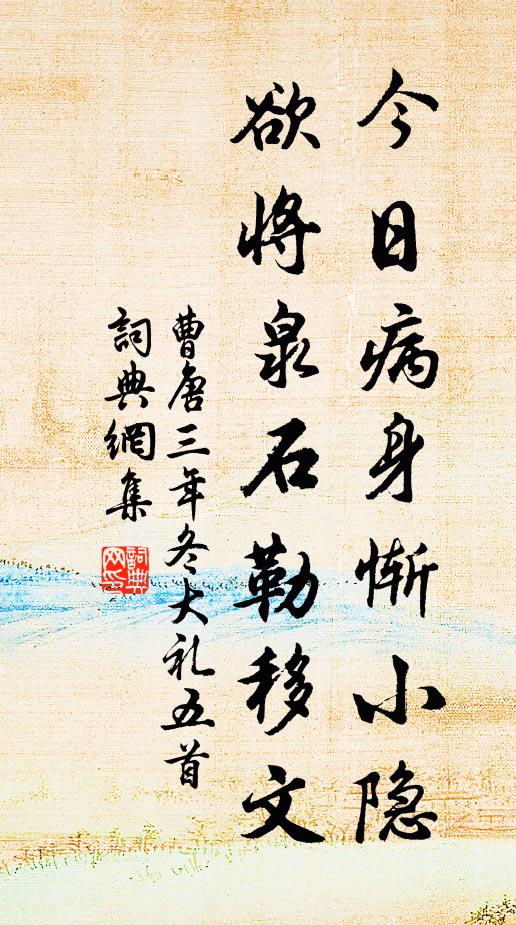 今日病身惭小隐
欲将泉石勒移文
曹唐三年冬大礼五首
詞典網集
詞典网印